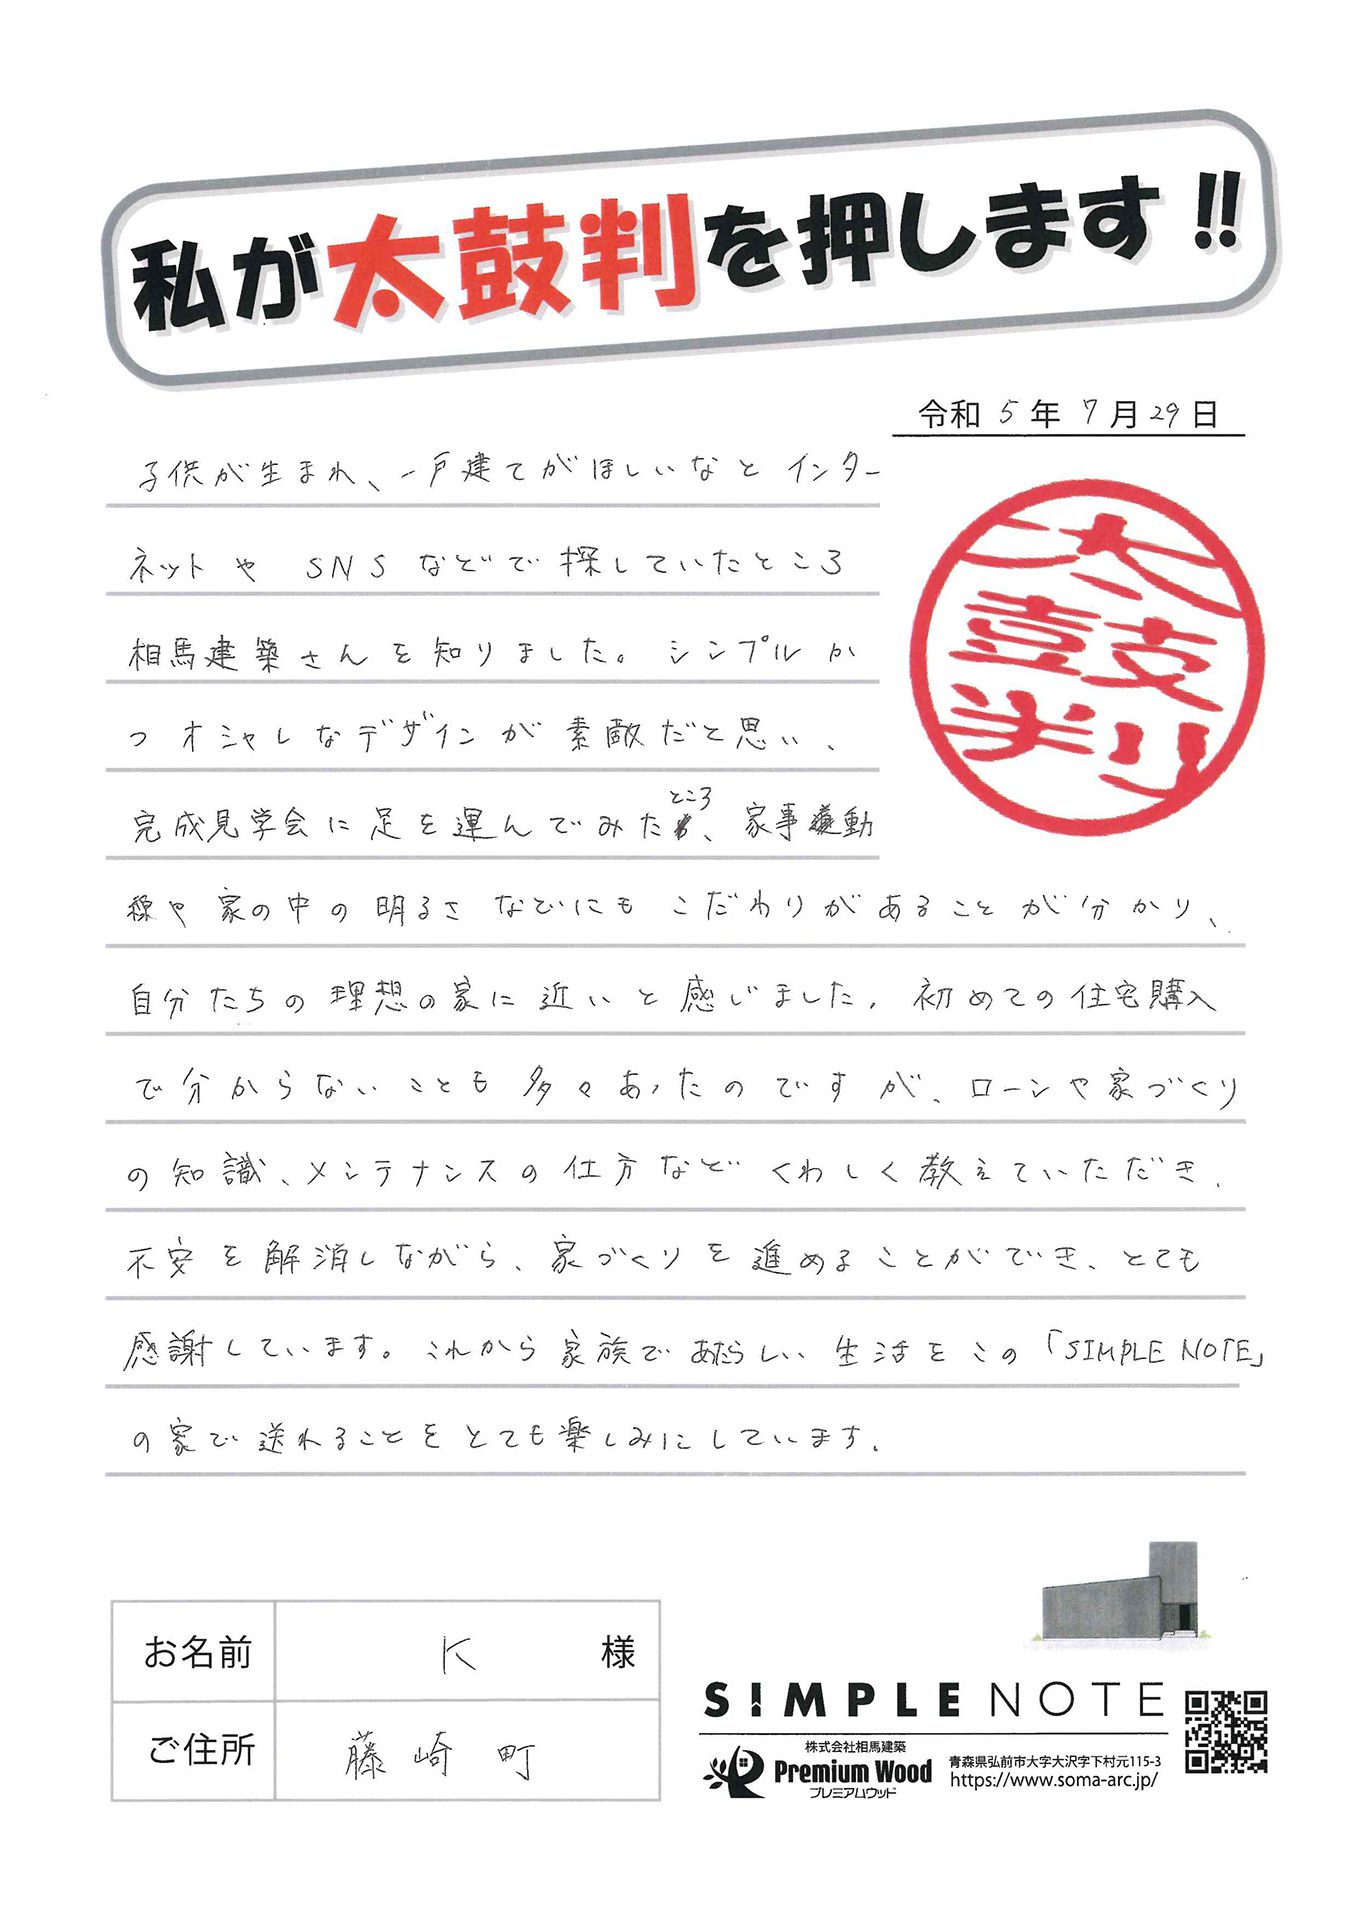 私が太鼓判を押します!!
令和 5 年 7 月 29 日
子供が生まれ、一戸建てがほしいなと インター
ネットや SNS などで探していたところ
相馬建築さんを知りました。シンプルか
つオシャレなデザインが素敵だと思い、
完成見学会に足を運んでみたところ、家事動
線や家の中の明るさなどにもこだわりがあることが分かり、
自分たちの理想の家に近いと感じました。初めての住宅購入
で分からないことも多々あったのですが、ローンや家づくり
の知識、メンテナンスの仕方などくわしく教えていただき、
不安を解消しながら、家づくりを進めることができ、とても
感謝しています。これから家族であたらしい生活をこの「SIMPLE NOTE」
の家で送れることをとても楽しみにしています。
太鼓判
お名前 K 様
ご住所 藤崎町
SIMPLE NOTE
株式会社相馬建築
Premium Wood
プレミアムウッド
青森県弘前市大字大沢字下村元115-3
https://www.soma-arc.jp/